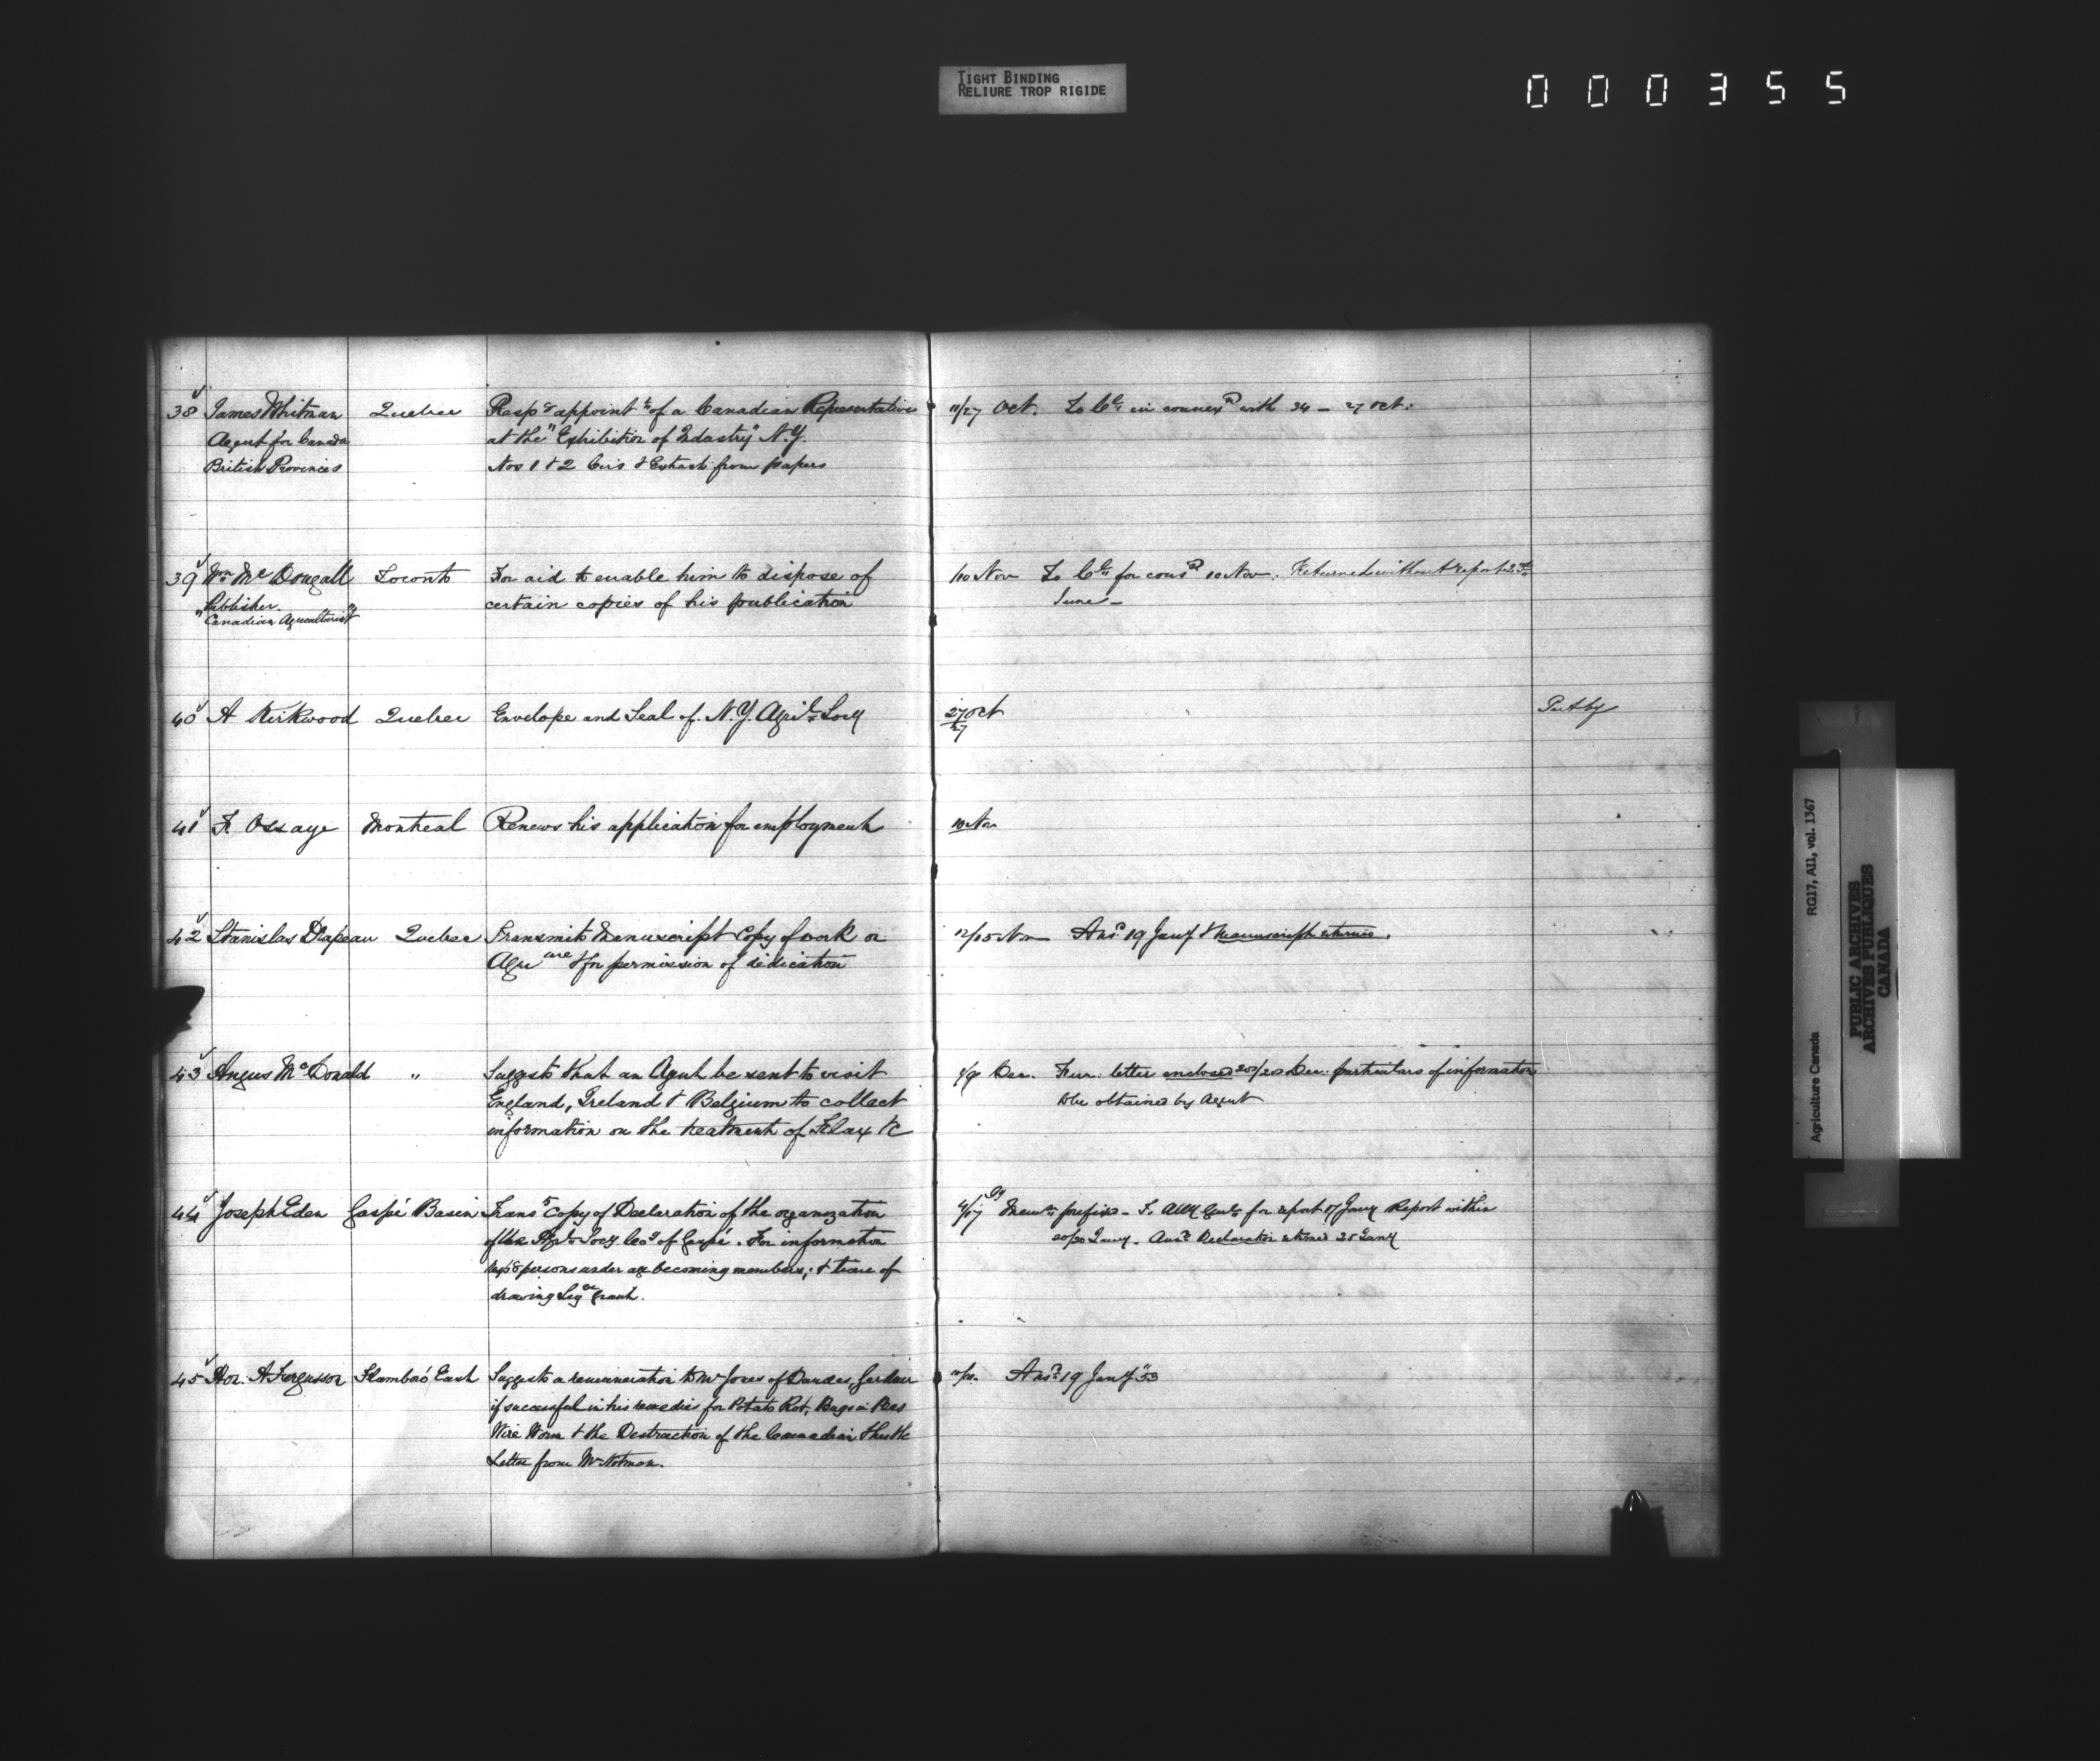 TIGHT BINDING
RELIURE TROP RIGIDE
000355
38 James Whitman Quebec Resp^g appoint^t of a Canadian Representative
Agent for Canada at the "Exhibition of Industry" N.Y.
British Provinces Nos 1 & 2 Circ & Extracts from papers
11/27 Oct. To C^cl in connex^n with 34 - 27 Oct:
39 W^m M^c Dougall Toronto For aid to enable him to dispose of
Publisher certain copies of his publication
"Canadian Agriculturist"
/10 Nov To C^cl for cons^n 10 Nov. Returned without report 2
June -
40 A Kirkwood Quebec Envelope and Seal of N.Y. Agri^l Socy
27 Oct
27
Put by
41 F. Ossaye Montreal Renews his application for employment
10 Nov
42 Stanislas Drapeau Quebec Transmits Manuscript Copy of work on
Agri^ure & for permission of dedication
12/15 Nov Ans^d 19 Jany & Manuscript returned.
43 Angus M^cDonald " Suggests that an Agent be sent to visit
England, Ireland & Belgium to collect
information on the treatment of Flax &c
Dec. Fur. letter enclosed 20/20 Dec. particulars of information
to be obtained by Agent
44 Joseph Eden Gaspé Basin Trans^s Copy of Declaration of the organization
of the Ag^l Socy Co^y of Gaspé. For information
resp^g persons under age becoming members; & time of
drawing Leg^ve grant.
Mem^o prefixed - To Atty Gen^l for report 17 Jany Report within
20/20 Jany. Ans^d Declaration returned 25 Jany
45 Hon. A Fergusson Flamboro' East Suggests a remuneration to Mr Jones of Dundas, Gardener
if successful in his remedies for Potato Rot, Bugs in Peas
Wire Worm & the Destruction of the Canadian thistle
Letter from Mr Notman.
Ans^d 19 Jany "53
Agriculture Canada RG17, AII, vol. 1367
PUBLIC ARCHIVES
ARCHIVES PUBLIQUES
CANADA